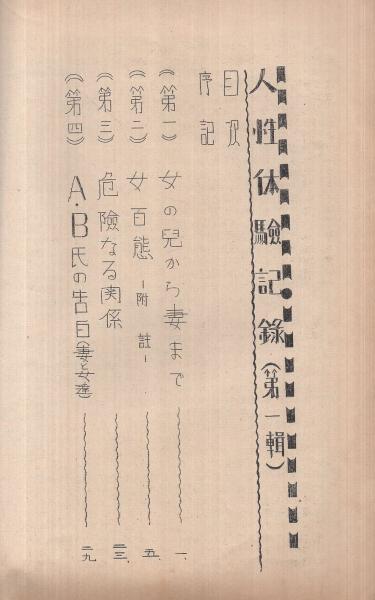 人性体験記録(第一輯)
目次
序記
(第一) 女の兒から妻まで 一、
(第二) 女百態 ー附 註ー 五、
(第三) 危險なる関係 二三、
(第四) A・B氏の告白(妻と女達) 二九